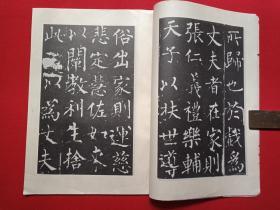 所歸也於戲為
丈夫者在家則
張仁義禮樂輔
天子以扶世導
俗出家則運慈
悲定慧佐如來
以闡教利生捨
此無以為丈夫